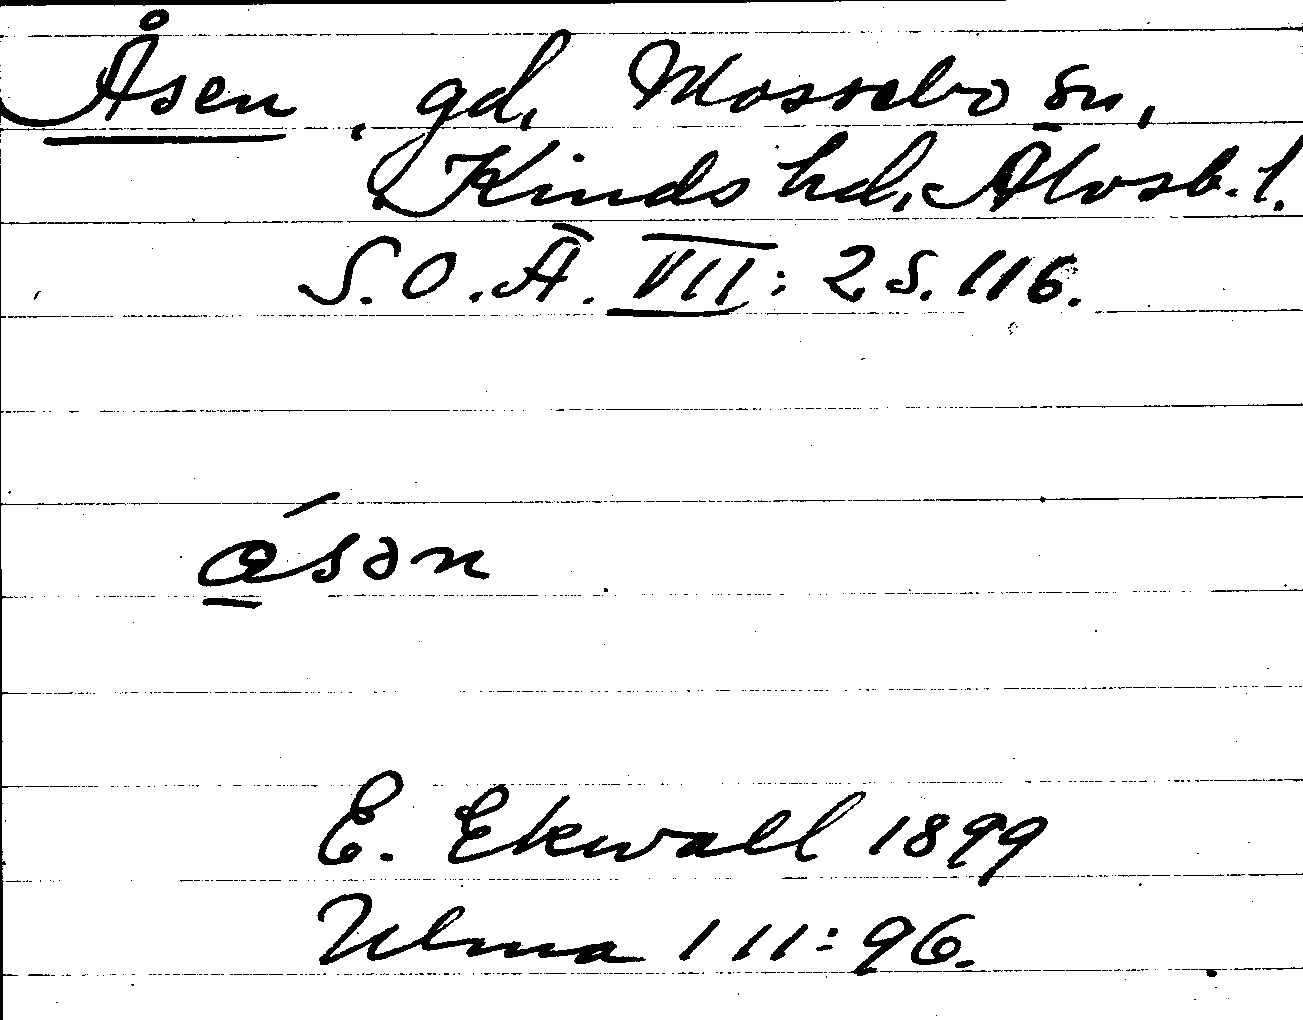 Åsen, gd, Mossebo sn,
Kinds hd, Älvsb. l.
S.O.Ä. VII: 2 S. 116.
ǻsən
E. Ekwall 1899
Ulma 111:96.